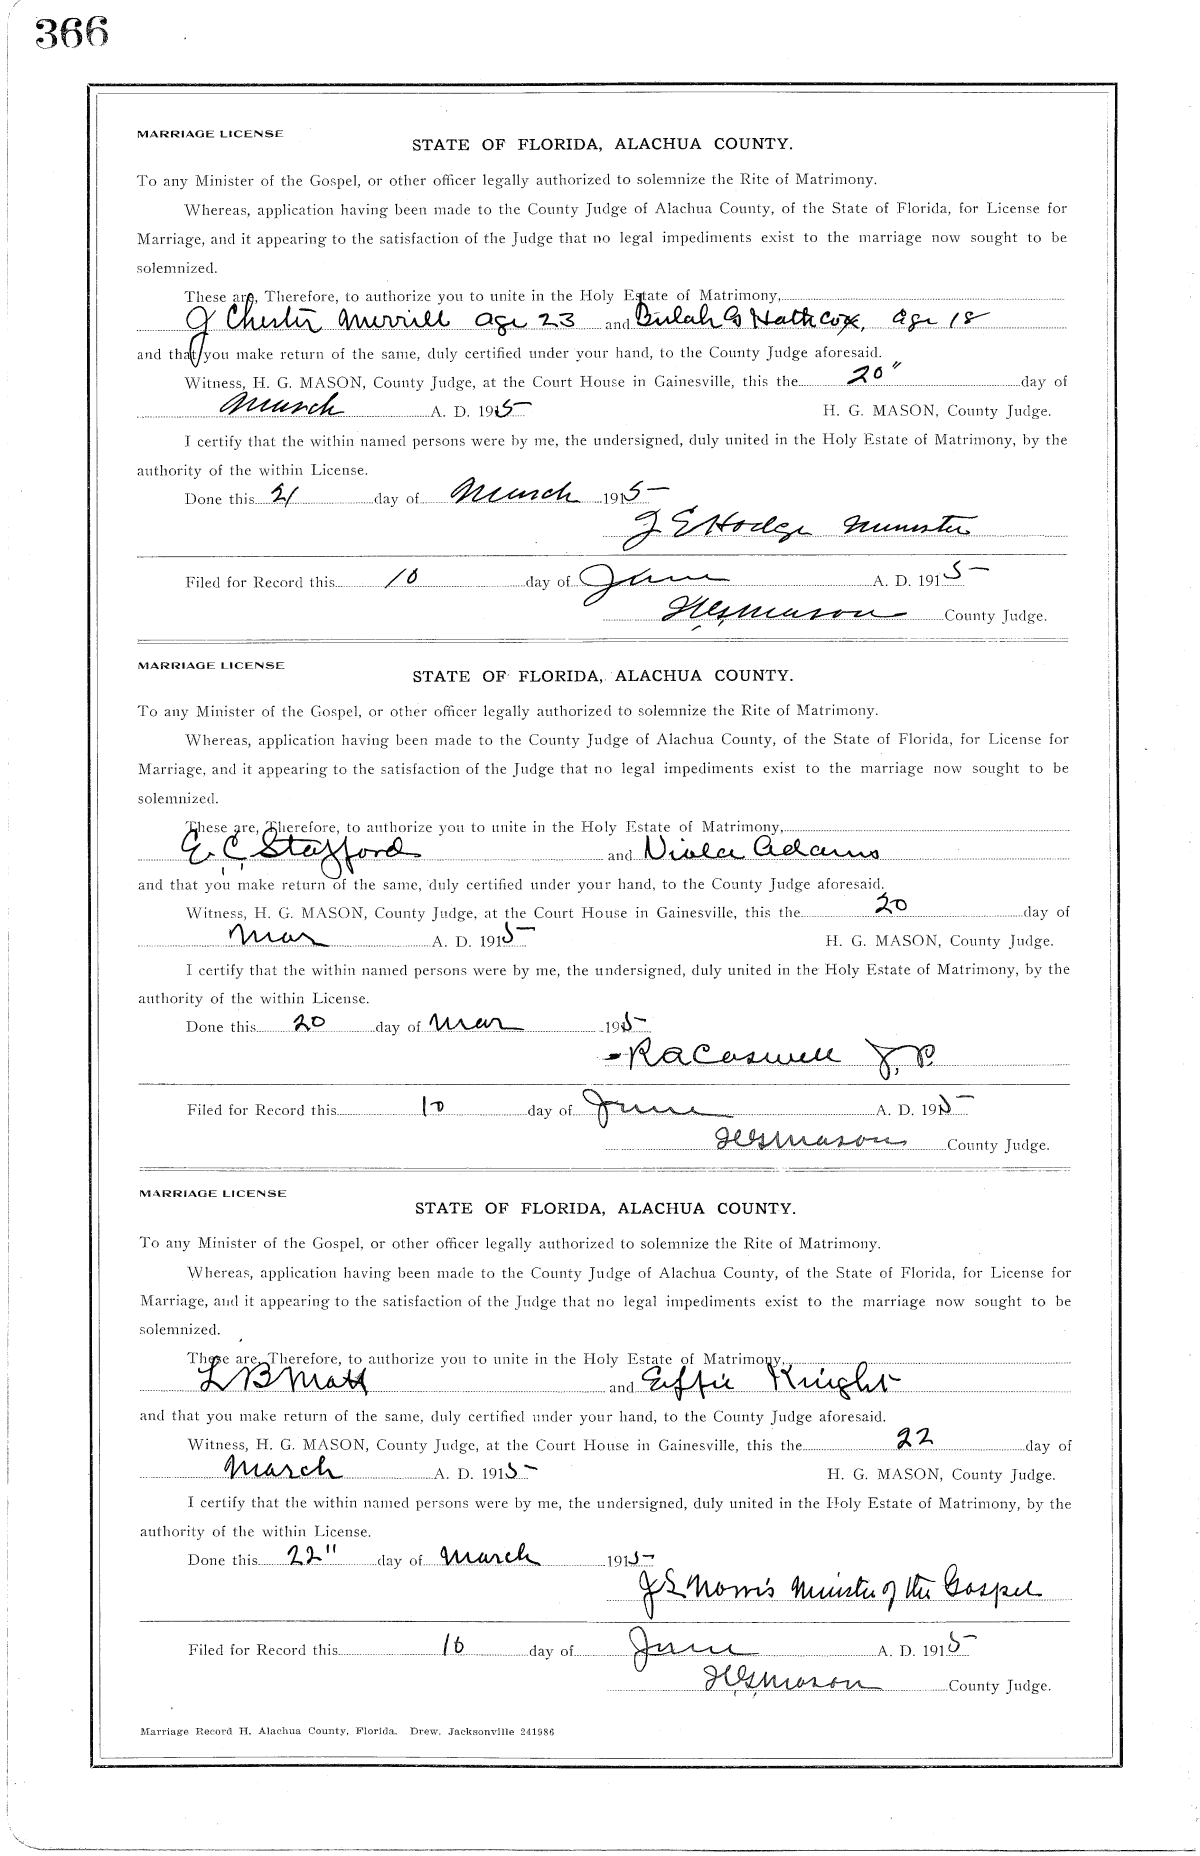 366
MARRIAGE LICENSE
STATE OF FLORIDA, ALACHUA COUNTY.
To any Minister of the Gospel, or other officer legally authorized to solemnize the Rite of Matrimony.
Whereas, application having been made to the County Judge of Alachua County, of the State of Florida, for License for
Marriage, and it appearing to the satisfaction of the Judge that no legal impediments exist to the marriage now sought to be
solemnized.
These are, Therefore, to authorize you to unite in the Holy Estate of Matrimony,
J Chester Merrill age 23 and Beulah G Hathcox, age 18
and that you make return of the same, duly certified under your hand, to the County Judge aforesaid.
Witness, H. G. MASON, County Judge, at the Court House in Gainesville, this the 20" day of
March A. D. 1915 H. G. MASON, County Judge.
I certify that the within named persons were by me, the undersigned, duly united in the Holy Estate of Matrimony, by the
authority of the within License.
Done this 21 day of March 1915
J E Hodge Minister
Filed for Record this 10 day of June A. D. 1915
H G Mason County Judge.
MARRIAGE LICENSE
STATE OF FLORIDA, ALACHUA COUNTY.
To any Minister of the Gospel, or other officer legally authorized to solemnize the Rite of Matrimony.
Whereas, application having been made to the County Judge of Alachua County, of the State of Florida, for License for
Marriage, and it appearing to the satisfaction of the Judge that no legal impediments exist to the marriage now sought to be
solemnized.
These are, Therefore, to authorize you to unite in the Holy Estate of Matrimony,
E. C. Stafford and Viola Adams
and that you make return of the same, duly certified under your hand, to the County Judge aforesaid.
Witness, H. G. MASON, County Judge, at the Court House in Gainesville, this the 20 day of
Mar A. D. 1915 H. G. MASON, County Judge.
I certify that the within named persons were by me, the undersigned, duly united in the Holy Estate of Matrimony, by the
authority of the within License.
Done this 20 day of Mar 1915
R A Caswell J. P.
Filed for Record this 10 day of June A. D. 1915
H G Mason County Judge.
MARRIAGE LICENSE
STATE OF FLORIDA, ALACHUA COUNTY.
To any Minister of the Gospel, or other officer legally authorized to solemnize the Rite of Matrimony.
Whereas, application having been made to the County Judge of Alachua County, of the State of Florida, for License for
Marriage, and it appearing to the satisfaction of the Judge that no legal impediments exist to the marriage now sought to be
solemnized.
These are, Therefore, to authorize you to unite in the Holy Estate of Matrimony,
L B Matt and Effie Knight
and that you make return of the same, duly certified under your hand, to the County Judge aforesaid.
Witness, H. G. MASON, County Judge, at the Court House in Gainesville, this the 22 day of
March A. D. 1915 H. G. MASON, County Judge.
I certify that the within named persons were by me, the undersigned, duly united in the Holy Estate of Matrimony, by the
authority of the within License.
Done this 22" day of March 1915
J S Norris Minister of the Gospel
Filed for Record this 10 day of June A. D. 1915
H G Mason County Judge.
Marriage Record H, Alachua County, Florida. Drew, Jacksonville 241986